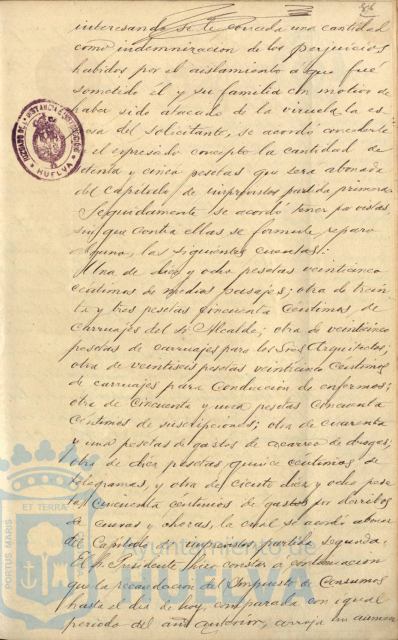 interesando se le conceda una cantidad
como indemnizacion de los perjuicios
habidos por el aislamiento á que fué
sometido él y su familia con motivo de
haber sido atacado de la viruela la es-
posa del solicitante, se acordó concederle
en el expresado concepto la cantidad de
setenta y cinco pesetas que será abonada
del Capitulo de imprevistos partida primera.
Seguidamente se acordó tener por vistas,
sin que contra ellas se formule reparo
alguno, las siguientes cuentas:
Una de diez y ocho pesetas veinticinco
céntimos de medios pasajes; otra de trein-
ta y tres pesetas cincuenta céntimos de
carruajes del Sr. Alcalde; otra de veinticinco
pesetas de carruajes para los Sres Arquitectos;
otra de veintiseis pesetas veinticinco céntimos
de carruajes para conduccion de enfermos;
otra de cincuenta y una pesetas cincuenta
céntimos de suscripciones; otra de cuarenta
y una pesetas de gastos de acarreo de drogas;
otra de diez pesetas quince céntimos de
telegramas, y otra de ciento diez y ocho pese-
tas cincuenta céntimos de gastos por derribos
de cuevas y chozas, la cual se acordó abonar
del Capitulo imprevistos partida segunda.
El Sr. Presidente hizo constar a continuacion
que la recaudacion del Impuesto de Consumos
hasta el dia de hoy, comparada con igual
periodo del año anterior, arroja un aumen
HUELVA
PORTUS MARIS
ET TERRA
Ayuntamiento de
HUELVA